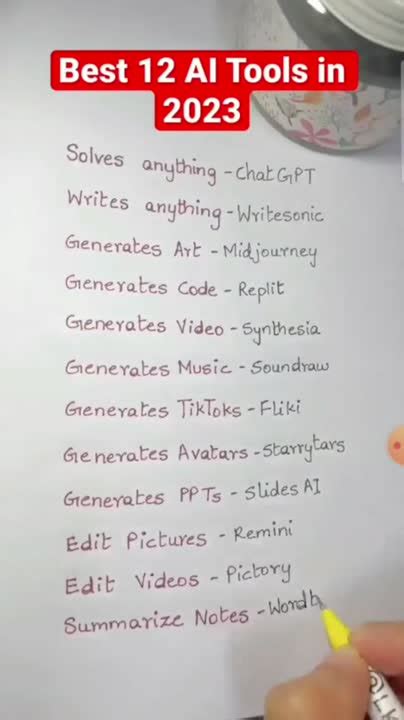 Best 12 AI Tools in
2023
Solves anything - ChatGPT
Writes anything - Writesonic
Generates Art - Midjourney
Generates Code - Replit
Generates Video - Synthesia
Generates Music - Soundraw
Generates TikToks - Fliki
Generates Avatars - Starrytars
Generates PPTs - Slides AI
Edit Pictures - Remini
Edit Videos - Pictory
Summarize Notes - Wordt